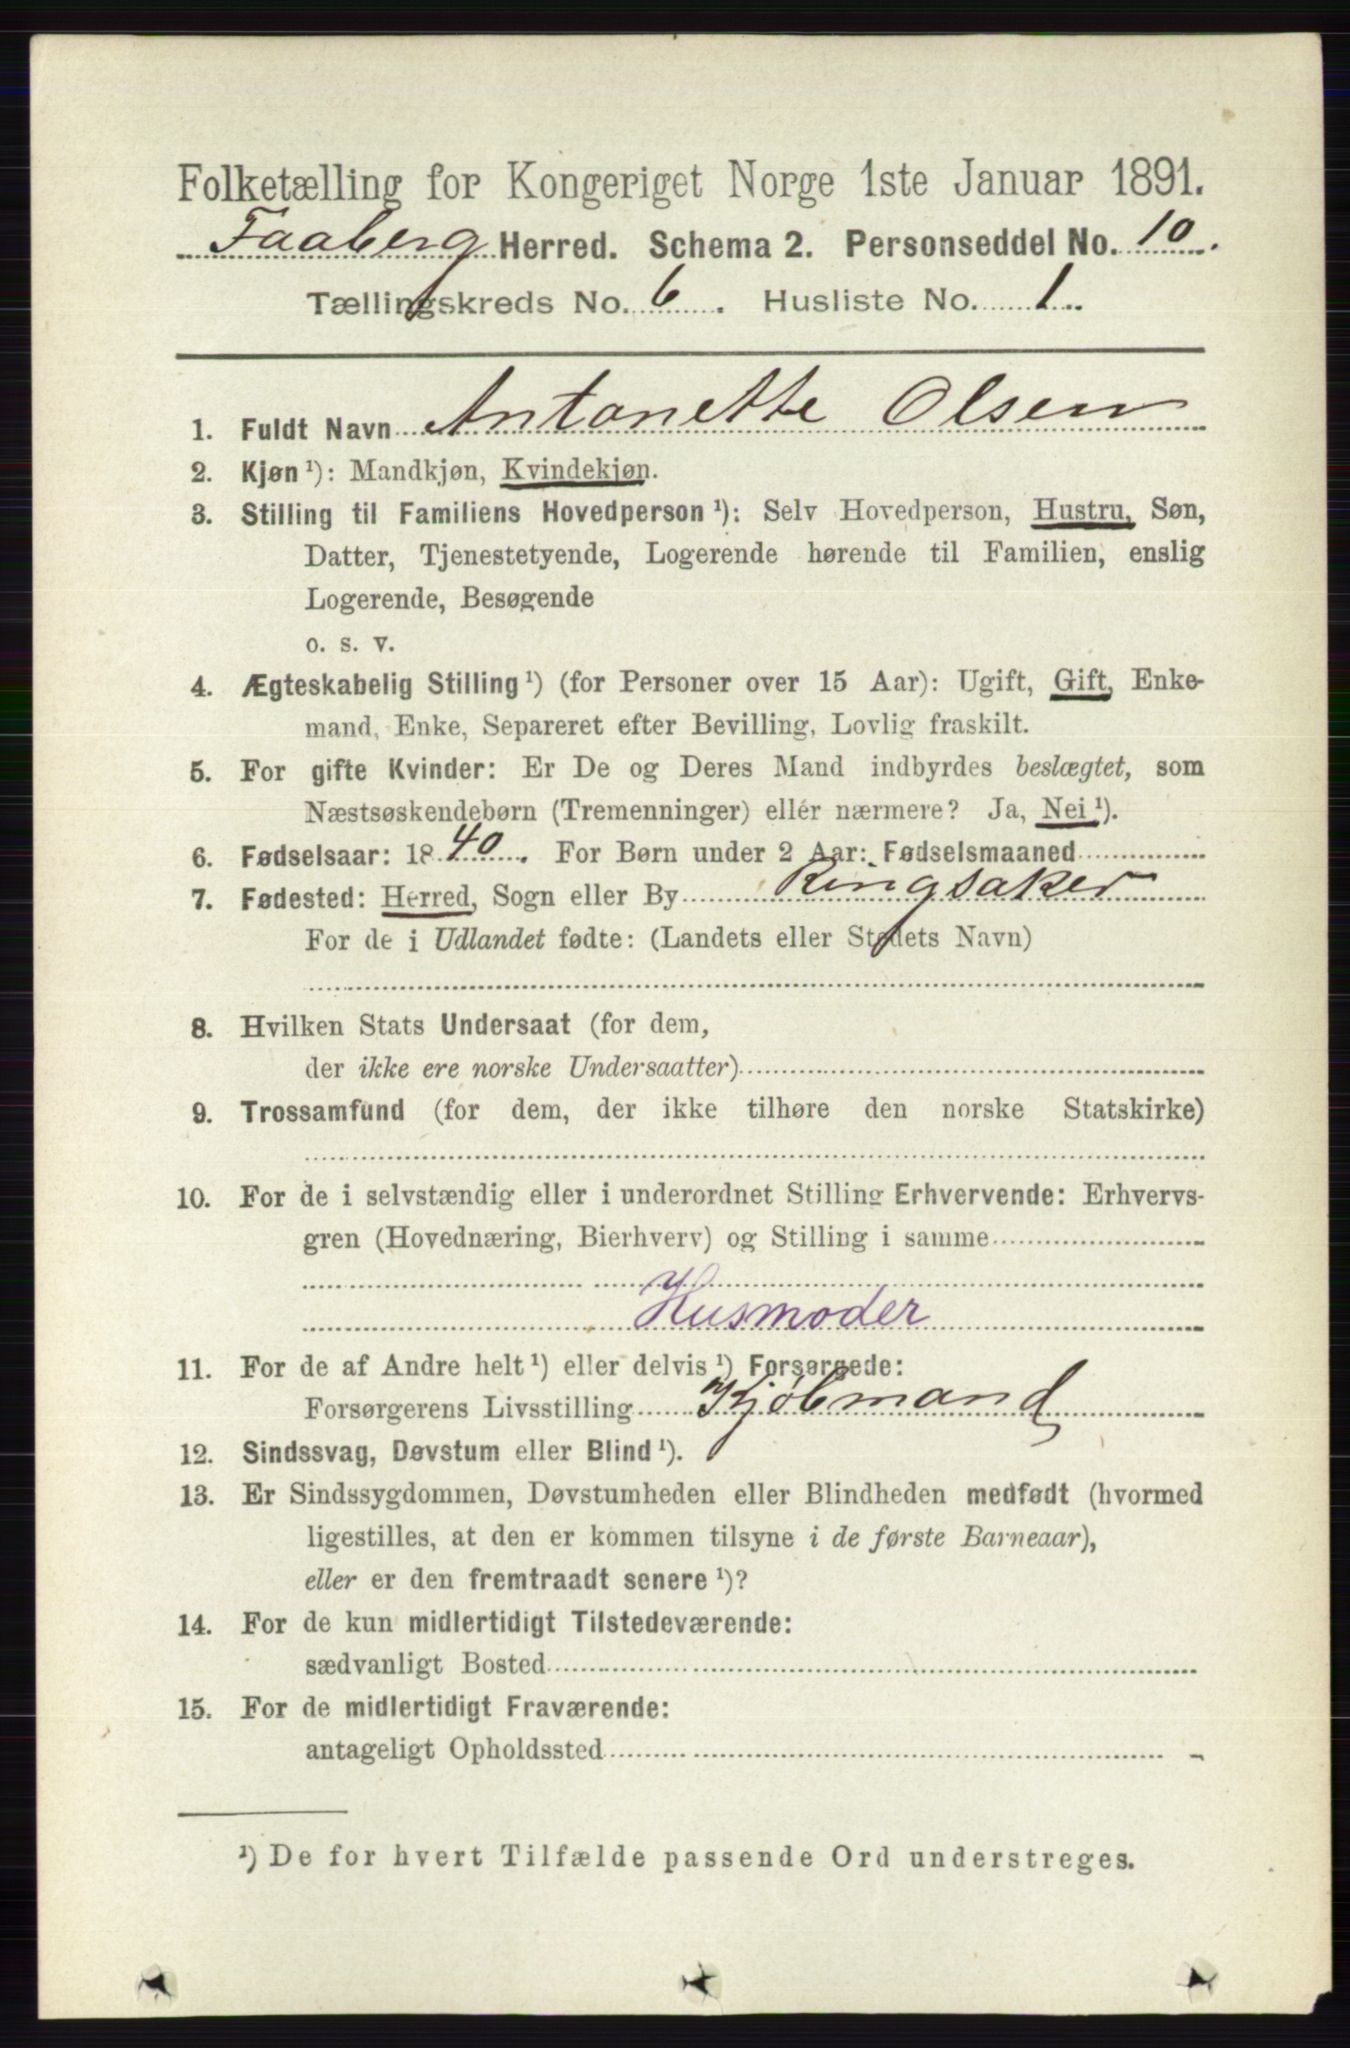 Folketælling for Kongeriget Norge 1ste Januar 1891.
Faaberg Herred. Schema 2. Personseddel No. 10.
Tællingskreds No. 6. Husliste No. 1.
1. Fuldt Navn Antonette Olsen
2. Kjøn ¹): Mandkjøn, Kvindekjøn.
3. Stilling til Familiens Hovedperson ¹): Selv Hovedperson, Hustru, Søn,
Datter, Tjenestetyende, Logerende hørende til Familien, enslig
Logerende, Besøgende
o. s. v.
4. Ægteskabelig Stilling ¹) (for Personer over 15 Aar): Ugift, Gift, Enke-
mand, Enke, Separeret efter Bevilling, Lovlig fraskilt.
5. For gifte Kvinder: Er De og Deres Mand indbyrdes beslægtet, som
Næstsøskendebørn (Tremenninger) eller nærmere? Ja, Nei ¹).
6. Fødselsaar: 1840. For Børn under 2 Aar: Fødselsmaaned
7. Fødested: Herred, Sogn eller By Ringsaker
For de i Udlandet fødte: (Landets eller Stedets Navn)
8. Hvilken Stats Undersaat (for dem,
der ikke ere norske Undersaatter)
9. Trossamfund (for dem, der ikke tilhøre den norske Statskirke)
10. For de i selvstændig eller i underordnet Stilling Erhvervende: Erhvervs-
gren (Hovednæring, Bierhverv) og Stilling i samme
Husmoder
11. For de af Andre helt ¹) eller delvis ¹) Forsørgede:
Forsørgerens Livsstilling Kjøbmand
12. Sindssvag, Døvstum eller Blind ¹).
13. Er Sindssygdommen, Døvstumheden eller Blindheden medfødt (hvormed
ligestilles, at den er kommen tilsyne i de første Barneaar),
eller er den fremtraadt senere ¹)?
14. For de kun midlertidigt Tilstedeværende:
sædvanligt Bosted
15. For de midlertidigt Fraværende:
antageligt Opholdssted
¹) De for hvert Tilfælde passende Ord understreges.